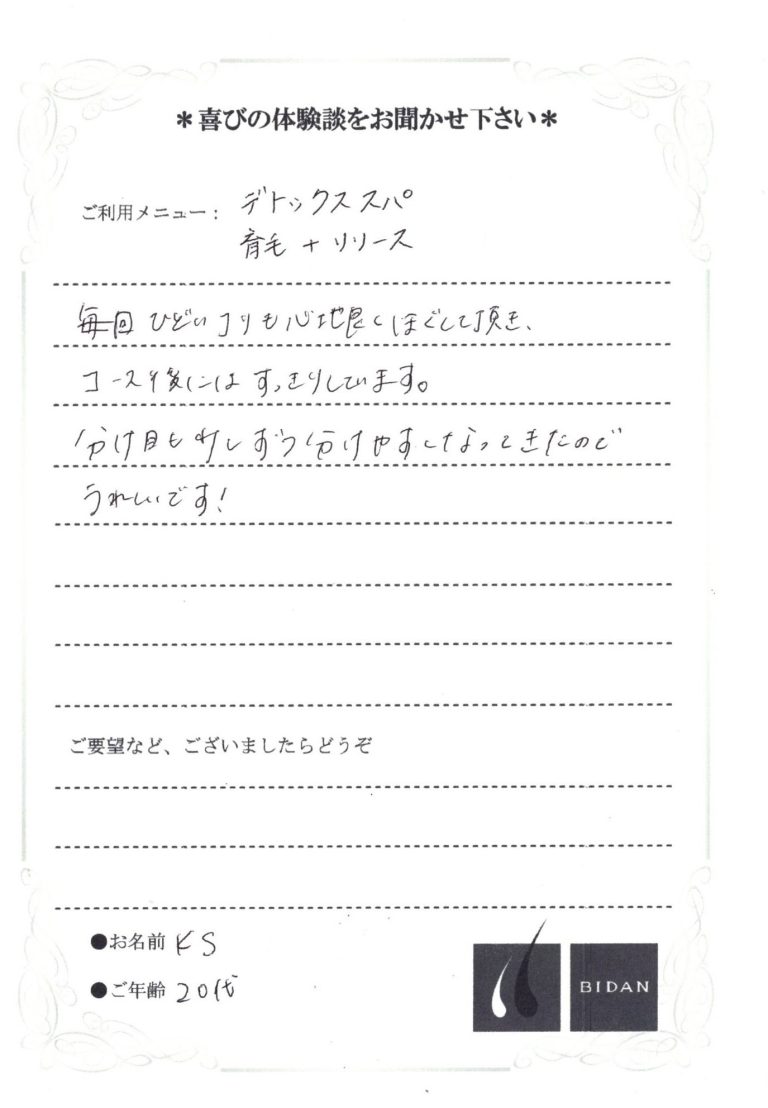 ＊喜びの体験談をお聞かせ下さい＊
ご利用メニュー： デトックススパ
育毛 + リリース
毎回 ひどいコリも心地良くほぐして頂き、
コース後にはすっきりしています。
分け目も少しずつ分けやすくなってきたので
うれしいです!
ご要望など、ございましたらどうぞ
●お名前 KS
●ご年齢 20代
BIDAN